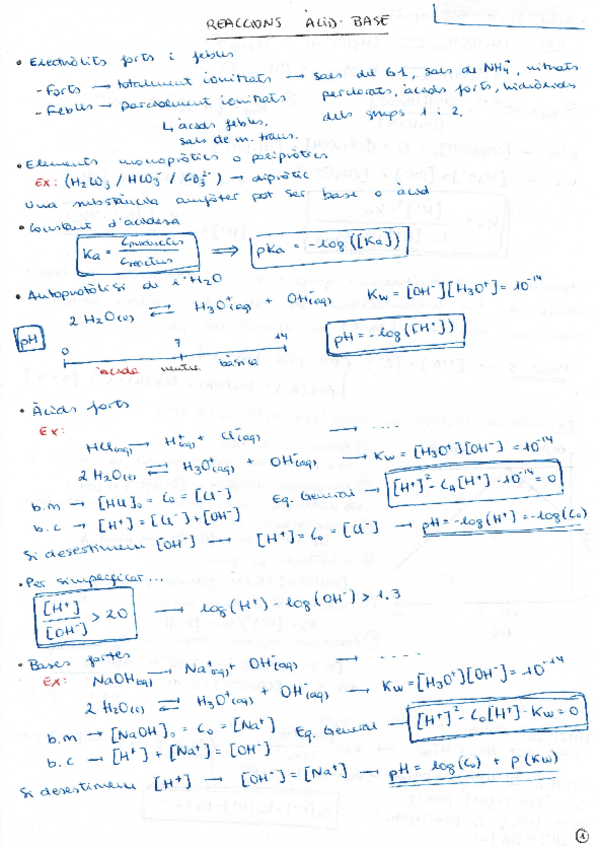 REACCIONS ÀCID-BASE
• Electròlits forts i febles
- Forts → totalment ionitzats → sals del G1, sals de NH₄⁺, nitrats
perclorats, àcids forts, hidròxids
dels grups 1 i 2.
- Febles → parcialment ionitzats
↳ àcids febles,
sals de m. trans.
• Elements monopròtics o polipròtics
Ex: (H₂CO₃ / HCO₃⁻ / CO₃²⁻) → dipròtic
Una substància amfòter pot ser base o àcid
• Constant d'acidesa
Ka = Cproductes / Creactius ⟹ pKa = -log([Ka])
• Autoprotòlisi de l'H₂O
2 H₂O(l) ⇄ H₃O⁺(aq) + OH⁻(aq) Kw = [OH⁻][H₃O⁺] = 10⁻¹⁴
pH
0 7 14
àcida neutra bàsica
pH = -log([H⁺])
• Àcids forts
Ex:
HCl(aq) → H⁺(aq) + Cl⁻(aq) → ....
2 H₂O(l) ⇄ H₃O⁺(aq) + OH⁻(aq) → Kw = [H₃O⁺][OH⁻] = 10⁻¹⁴
b.m → [HCl]₀ = C₀ = [Cl⁻] Eq. General → [H⁺]² - Cₐ[H⁺] - 10⁻¹⁴ = 0
b.c → [H⁺] = [Cl⁻] + [OH⁻]
Si desestimem [OH⁻] → [H⁺] = C₀ = [Cl⁻] → pH = -log(H⁺) = -log(C₀)
• Per simplificar...
[H⁺] / [OH⁻] > 20 → log(H⁺) - log(OH⁻) > 1.3
• Bases fortes
Ex: NaOH(aq) → Na⁺(aq) + OH⁻(aq) → ....
2 H₂O(l) ⇄ H₃O⁺(aq) + OH⁻(aq) → Kw = [H₃O⁺][OH⁻] = 10⁻¹⁴
b.m → [NaOH]₀ = C₀ = [Na⁺] Eq. General → [H⁺]² - C₀[H⁺] - Kw = 0
b.c → [H⁺] + [Na⁺] = [OH⁻]
Si desestimem [H⁺] → [OH⁻] = [Na⁺] → pH = log(C₀) + p(Kw)
1